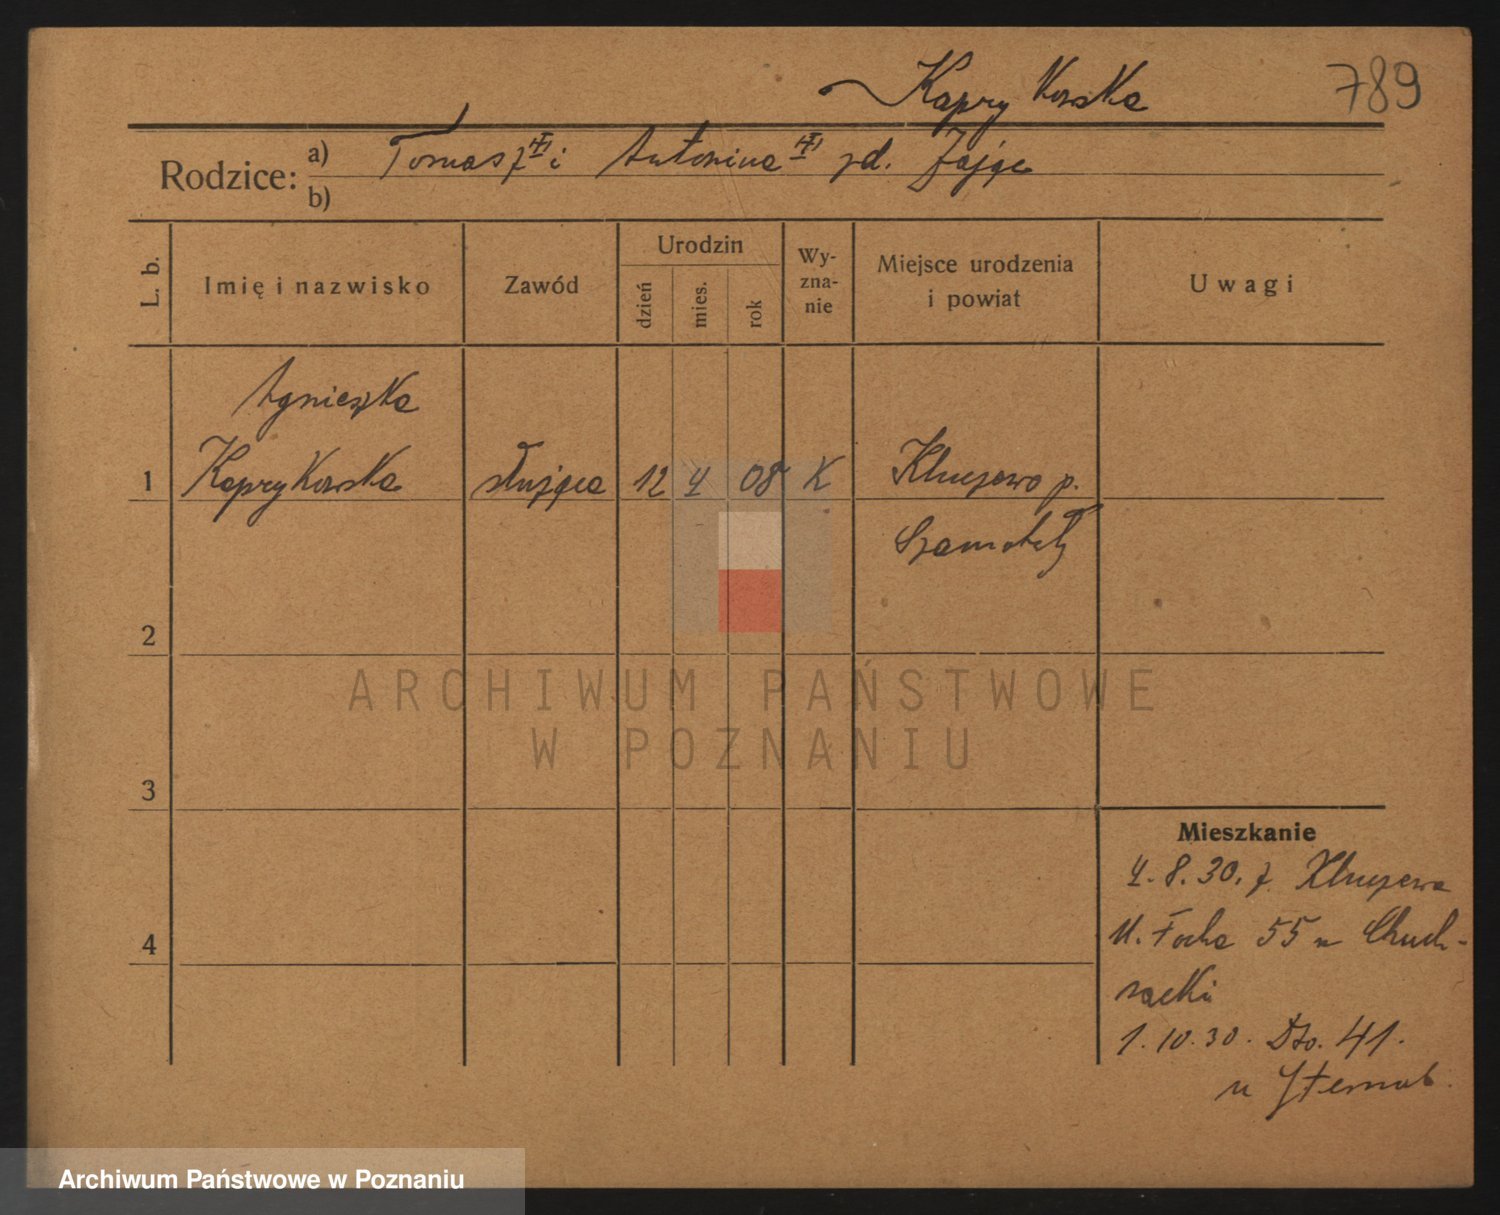 Kaprykowska
789
Rodzice:
a) Tomasz i Antonina zd. Zając
b)
L. b.
Imię i nazwisko
Zawód
Urodzin
dzień
mies.
rok
Wy-
zna-
nie
Miejsce urodzenia
i powiat
Uwagi
Agnieszka
1 Kaprykowska służąca 12 4 08 K Kluczewo p.
Szamotuły
2
3
4
Mieszkanie
4.8.30. z Kluczewa
M. Focha 55 u Chud-
1.10.30. 41.
u
ARCHIWUM PAŃSTWOWE
W POZNANIU
Archiwum Państwowe w Poznaniu